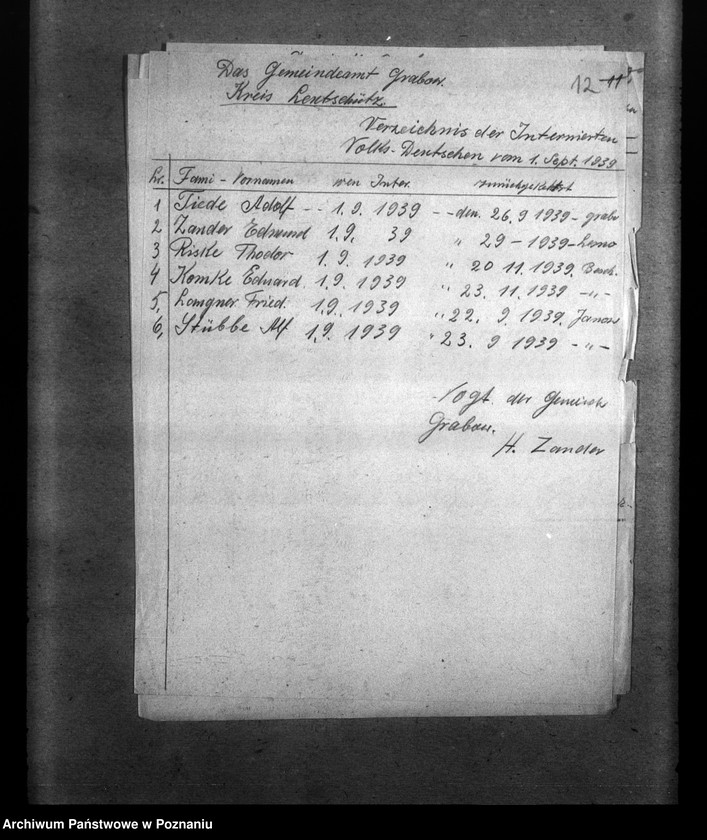 Das Gemeindeamt Grabow.
Kreis Lentschütz.
12 11
Verzeichnis der Internierten
Volks-Deutschen vom 1. Sept. 1939
Nr. Fami - Vornamen wen Inter. zurückgekehrt
1 Tiede Adolf -- 1. 9. 1939 -- den. 26. 9 1939 - grabo
2 Zander Edmund 1. 9. 39 " 29 - 1939 -
3 Riske Thodor 1. 9. 1939 " 20 11. 1939.
4 Komke Eduard. 1. 9. 1939 " 23. 11. 1939 -"-
5, Langner Fried. 1. 9. 1939 " 22. 9. 1939. Janow
6, Stübbe Alf 1. 9. 1939 " 23. 9 1939 -"-
Vogt der Gemeinde
Grabow.
H. Zander
Archiwum Państwowe w Poznaniu